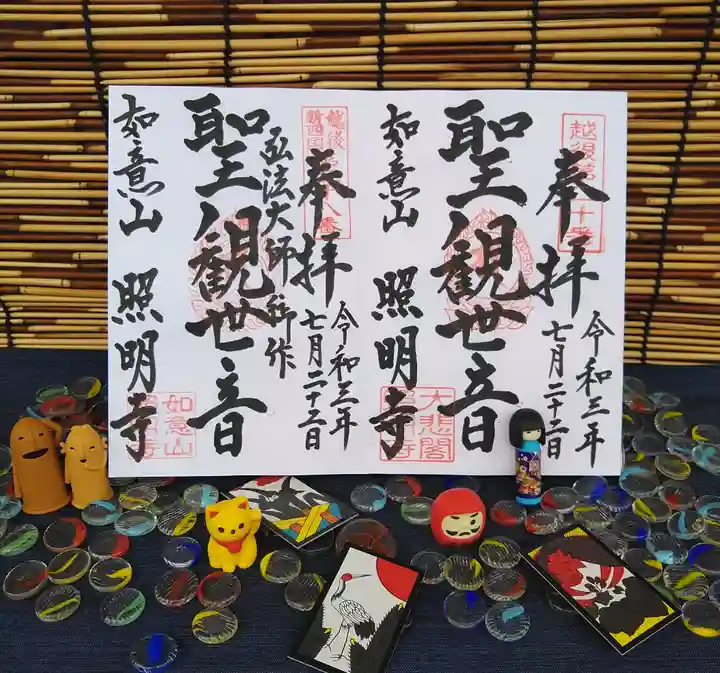 越後第二十番
奉拝
令和三年
七月二十二日
聖観世音
大悲閣
如意山 照明寺
越後
新四国
八番
奉拝
令和三年
七月二十二日
弘法大師御作
聖観世音
如意山
如意山 照明寺